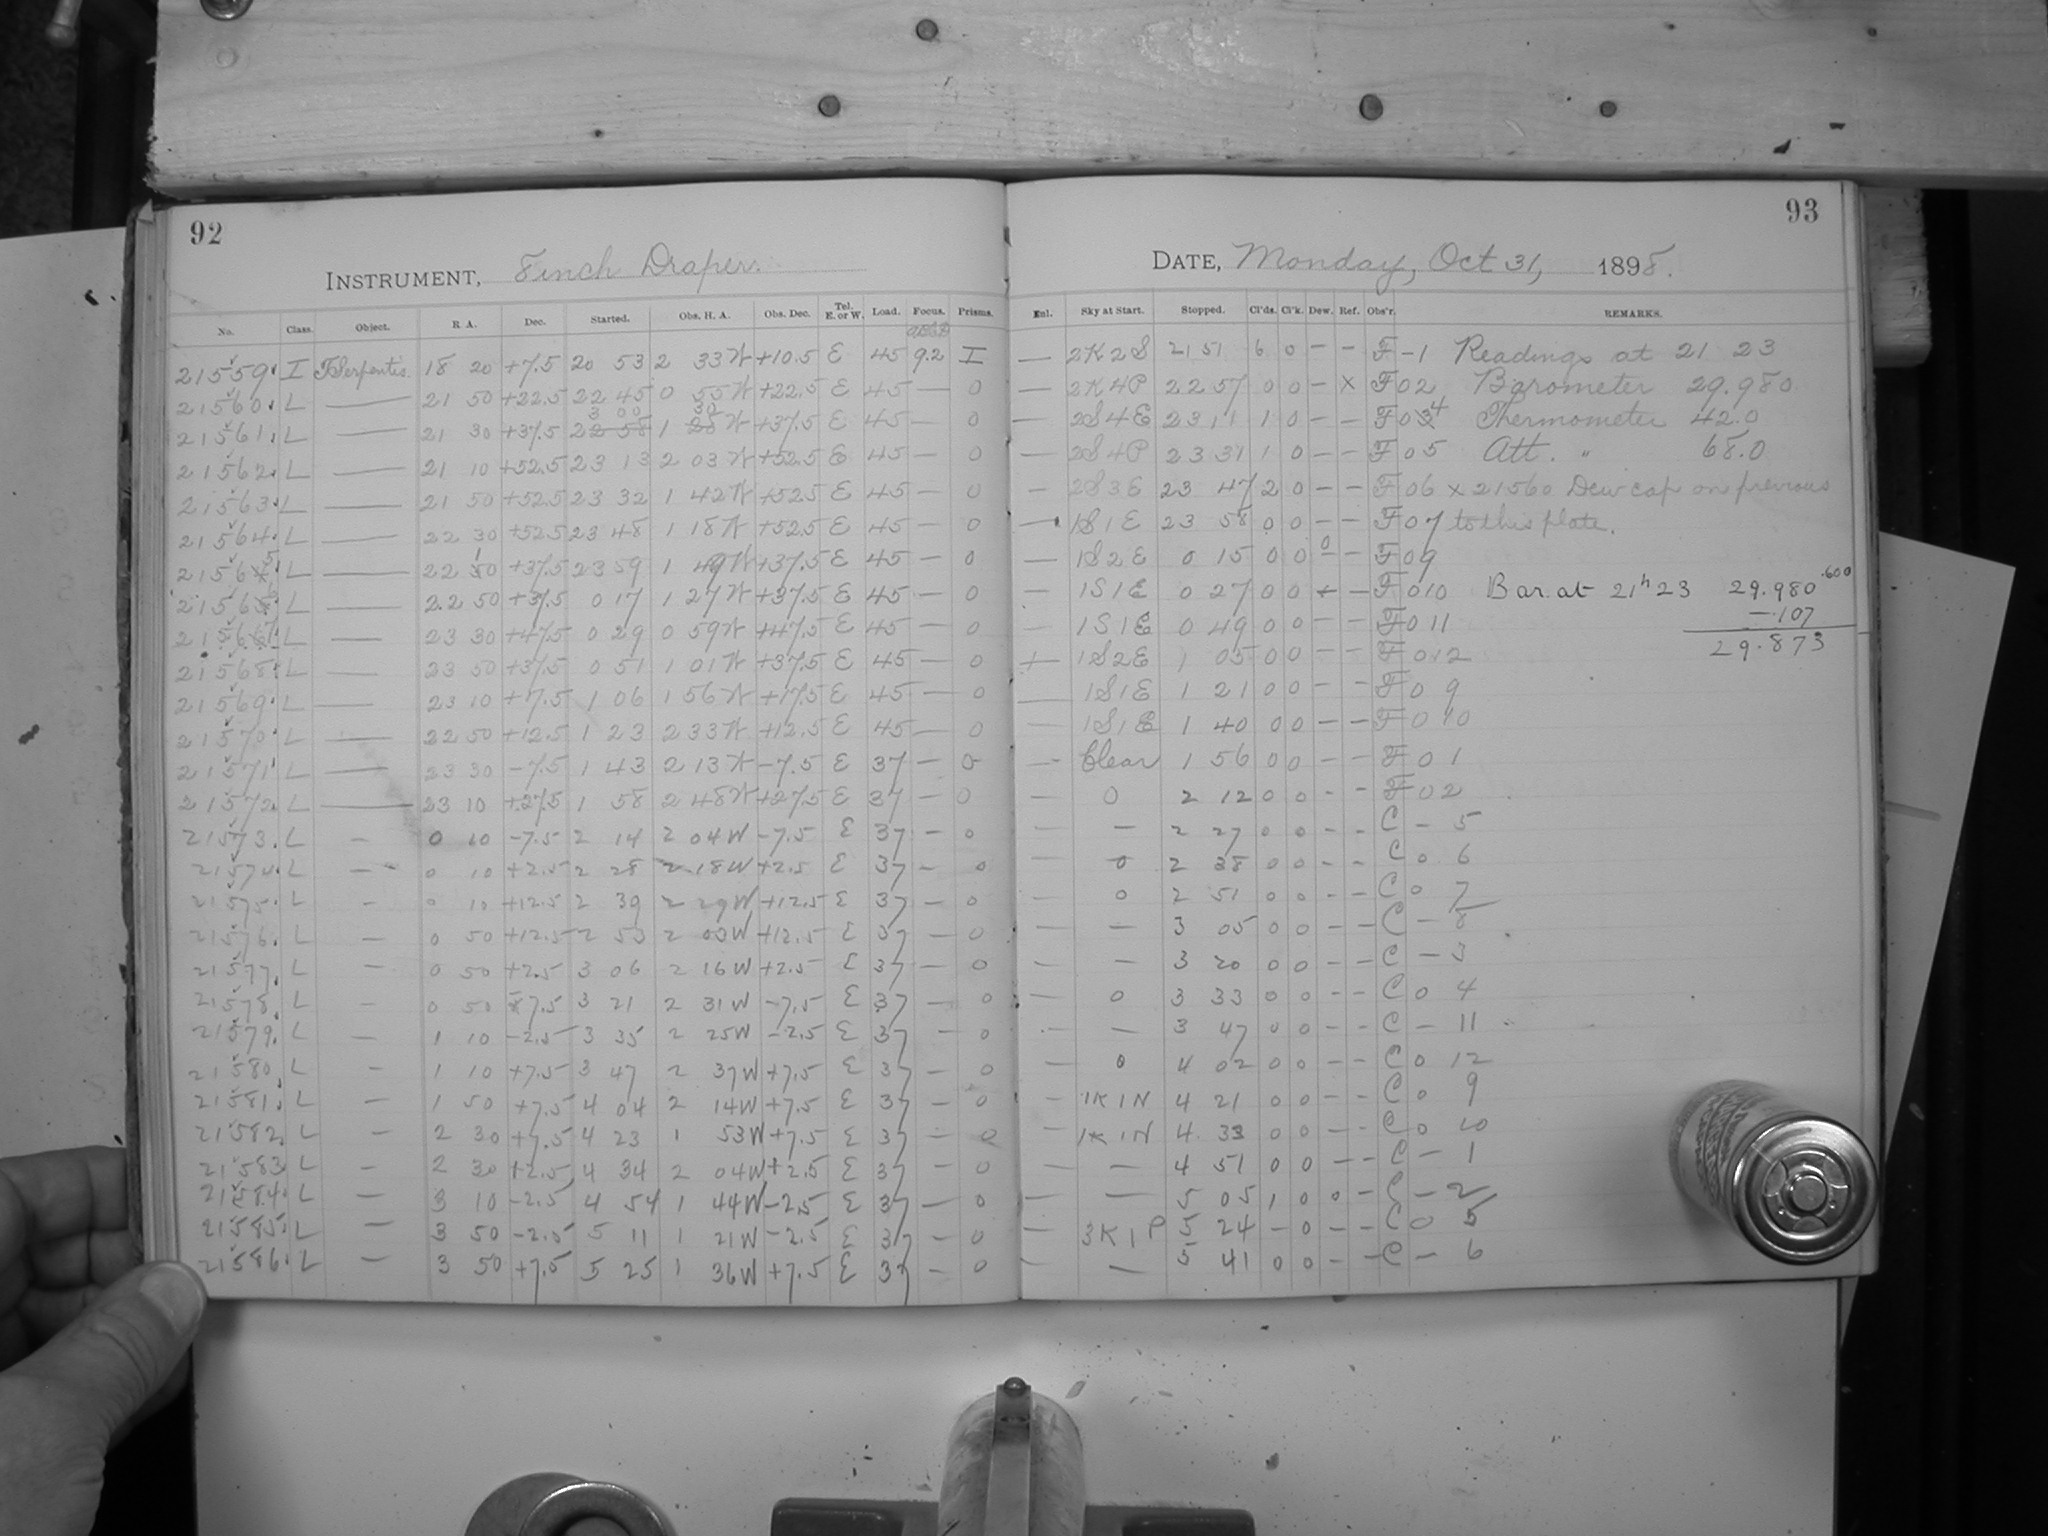 92
INSTRUMENT, 8 inch Draper.
No. Class. Object. R. A. Dec. Started. Obs. H. A. Obs. Dec. Tel. E. or W. Load. Focus. Prisms.
21559. I T Serpentis 18 20 +7.5 20 53 2 33 W +10.5 E 45 9.2 I
21560. L — 21 50 +22.5 22 45 0 55 W +22.5 E 45 — 0
21561. L — 21 30 +37.5 1 W +37.5 E 45 — 0
21562. L — 21 10 +52.5 23 13 2 03 W +52.5 E 45 — 0
21563. L — 21 50 +52.5 23 32 1 42 W +52.5 E 45 — 0
21564. L — 22 30 +52.5 23 48 1 18 W +52.5 E 45 — 0
21565. L — 22 10 +37.5 23 59 1 49 W +37.5 E 45 — 0
21566. L — 22 50 +37.5 0 17 1 27 W +37.5 E 45 — 0
21567. L — 23 30 +47.5 0 29 0 59 W +47.5 E 45 — 0
21568. L — 23 50 +37.5 0 51 1 01 W +37.5 E 45 — 0
21569. L — 23 10 +17.5 1 06 1 56 W +17.5 E 45 — 0
21570. L — 22 50 +12.5 1 23 2 33 W +12.5 E 45 — 0
21571. L — 23 30 -7.5 1 43 2 13 W -7.5 E 37 — 0
21572. L — 23 10 +27.5 1 58 2 48 W +27.5 E 37 — 0
21573. L — 0 10 -7.5 2 14 2 04 W -7.5 E 37 — 0
21574. L — 0 10 +2.5 2 28 2 18 W +2.5 E 37 — 0
21575. L — 0 10 +12.5 2 39 2 29 W +12.5 E 37 — 0
21576. L — 0 50 +12.5 2 53 2 03 W +12.5 E 37 — 0
21577. L — 0 50 +2.5 3 06 2 16 W +2.5 E 37 — 0
21578. L — 0 50 -7.5 3 21 2 31 W -7.5 E 37 — 0
21579. L — 1 10 -2.5 3 35 2 25 W -2.5 E 37 — 0
21580. L — 1 10 +7.5 3 47 2 37 W +7.5 E 37 — 0
21581. L — 1 50 +7.5 4 04 2 14 W +7.5 E 37 — 0
21582. L — 2 30 +7.5 4 23 1 53 W +7.5 E 37 — 0
21583. L — 2 30 +2.5 4 34 2 04 W +2.5 E 37 — 0
21584. L — 3 10 -2.5 4 54 1 44 W -2.5 E 37 — 0
21585. L — 3 50 -2.5 5 11 1 21 W -2.5 E 37 — 0
21586. L — 3 50 +7.5 5 25 1 36 W +7.5 E 37 — 0
93
DATE, Monday, Oct 31, 1898.
Enl. Sky at Start. Stopped. Cl'ds. Cl'k. Dew. Ref. Obs'r. REMARKS.
— 2K2S 21 51 6 0 — — F -1 Readings at 21 23
— 2K4P 22 57 0 0 — x F 02 Barometer 29.980
— 2S4E 23 11 1 0 — — F 04 Thermometer 42.0
— 2S4P 23 31 1 0 — — F 05 Att. " 68.0
— 2S3E 23 47 2 0 — — F 06 x 21560 Dew cap on previous
— 1S1E 23 58 0 0 — — F 07 to this plate.
— 1S2E 0 15 0 0 0 — F 09
— 1S1E 0 27 0 0 — — F 010 Bar. at 21h 23 29.980 .600
— 1S1E 0 49 0 0 — — F 011 -.107
— 1S2E 1 05 0 0 — — F 012 29.873
— 1S1E 1 21 0 0 — — F 0 9
— 1S1E 1 40 0 0 — — F 0 10
— Clear 1 56 0 0 — — F 0 1
— 0 2 12 0 0 — — F 0 2
— — 2 27 0 0 — — C — 5
— 0 2 38 0 0 — — C 0 6
— 0 2 51 0 0 — — C 0 7
— — 3 05 0 0 — — C — 8
— — 3 20 0 0 — — C — 3
— 0 3 33 0 0 — — C 0 4
— — 3 47 0 0 — — C — 11
— 0 4 02 0 0 — — C 0 12
— 1K1N 4 21 0 0 — — C 0 9
— 1K1N 4 33 0 0 — — C 0 10
— — 4 51 0 0 — — C — 1
— — 5 05 1 0 0 — C — 2
— 3K1P 5 24 — 0 — — C 0 5
— — 5 41 0 0 — — C — 6